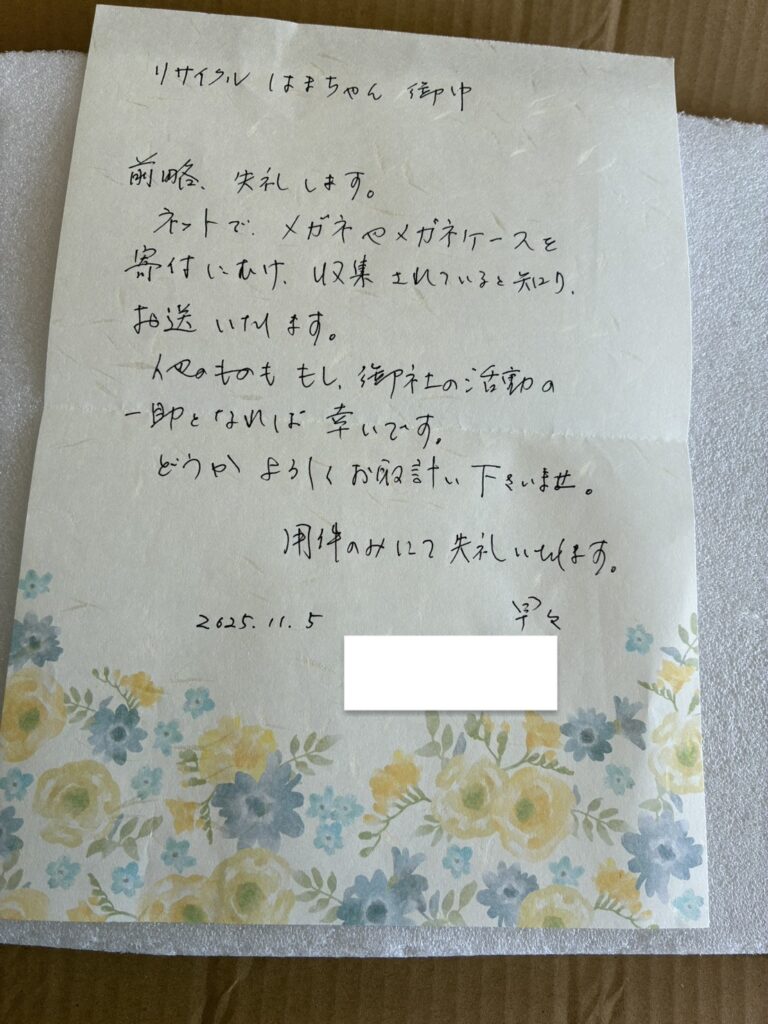 リサイクル はまちゃん 御中
前略、失礼します。
ネットで、メガネやメガネケースを
寄付にむけ、収集されていると知り、
お送りいたします。
他のものも もし、御社の活動の
一助となれば 幸いです。
どうか よろしく お取計い 下さいませ。
用件のみにて 失礼いたします。
2025.11.5 早々